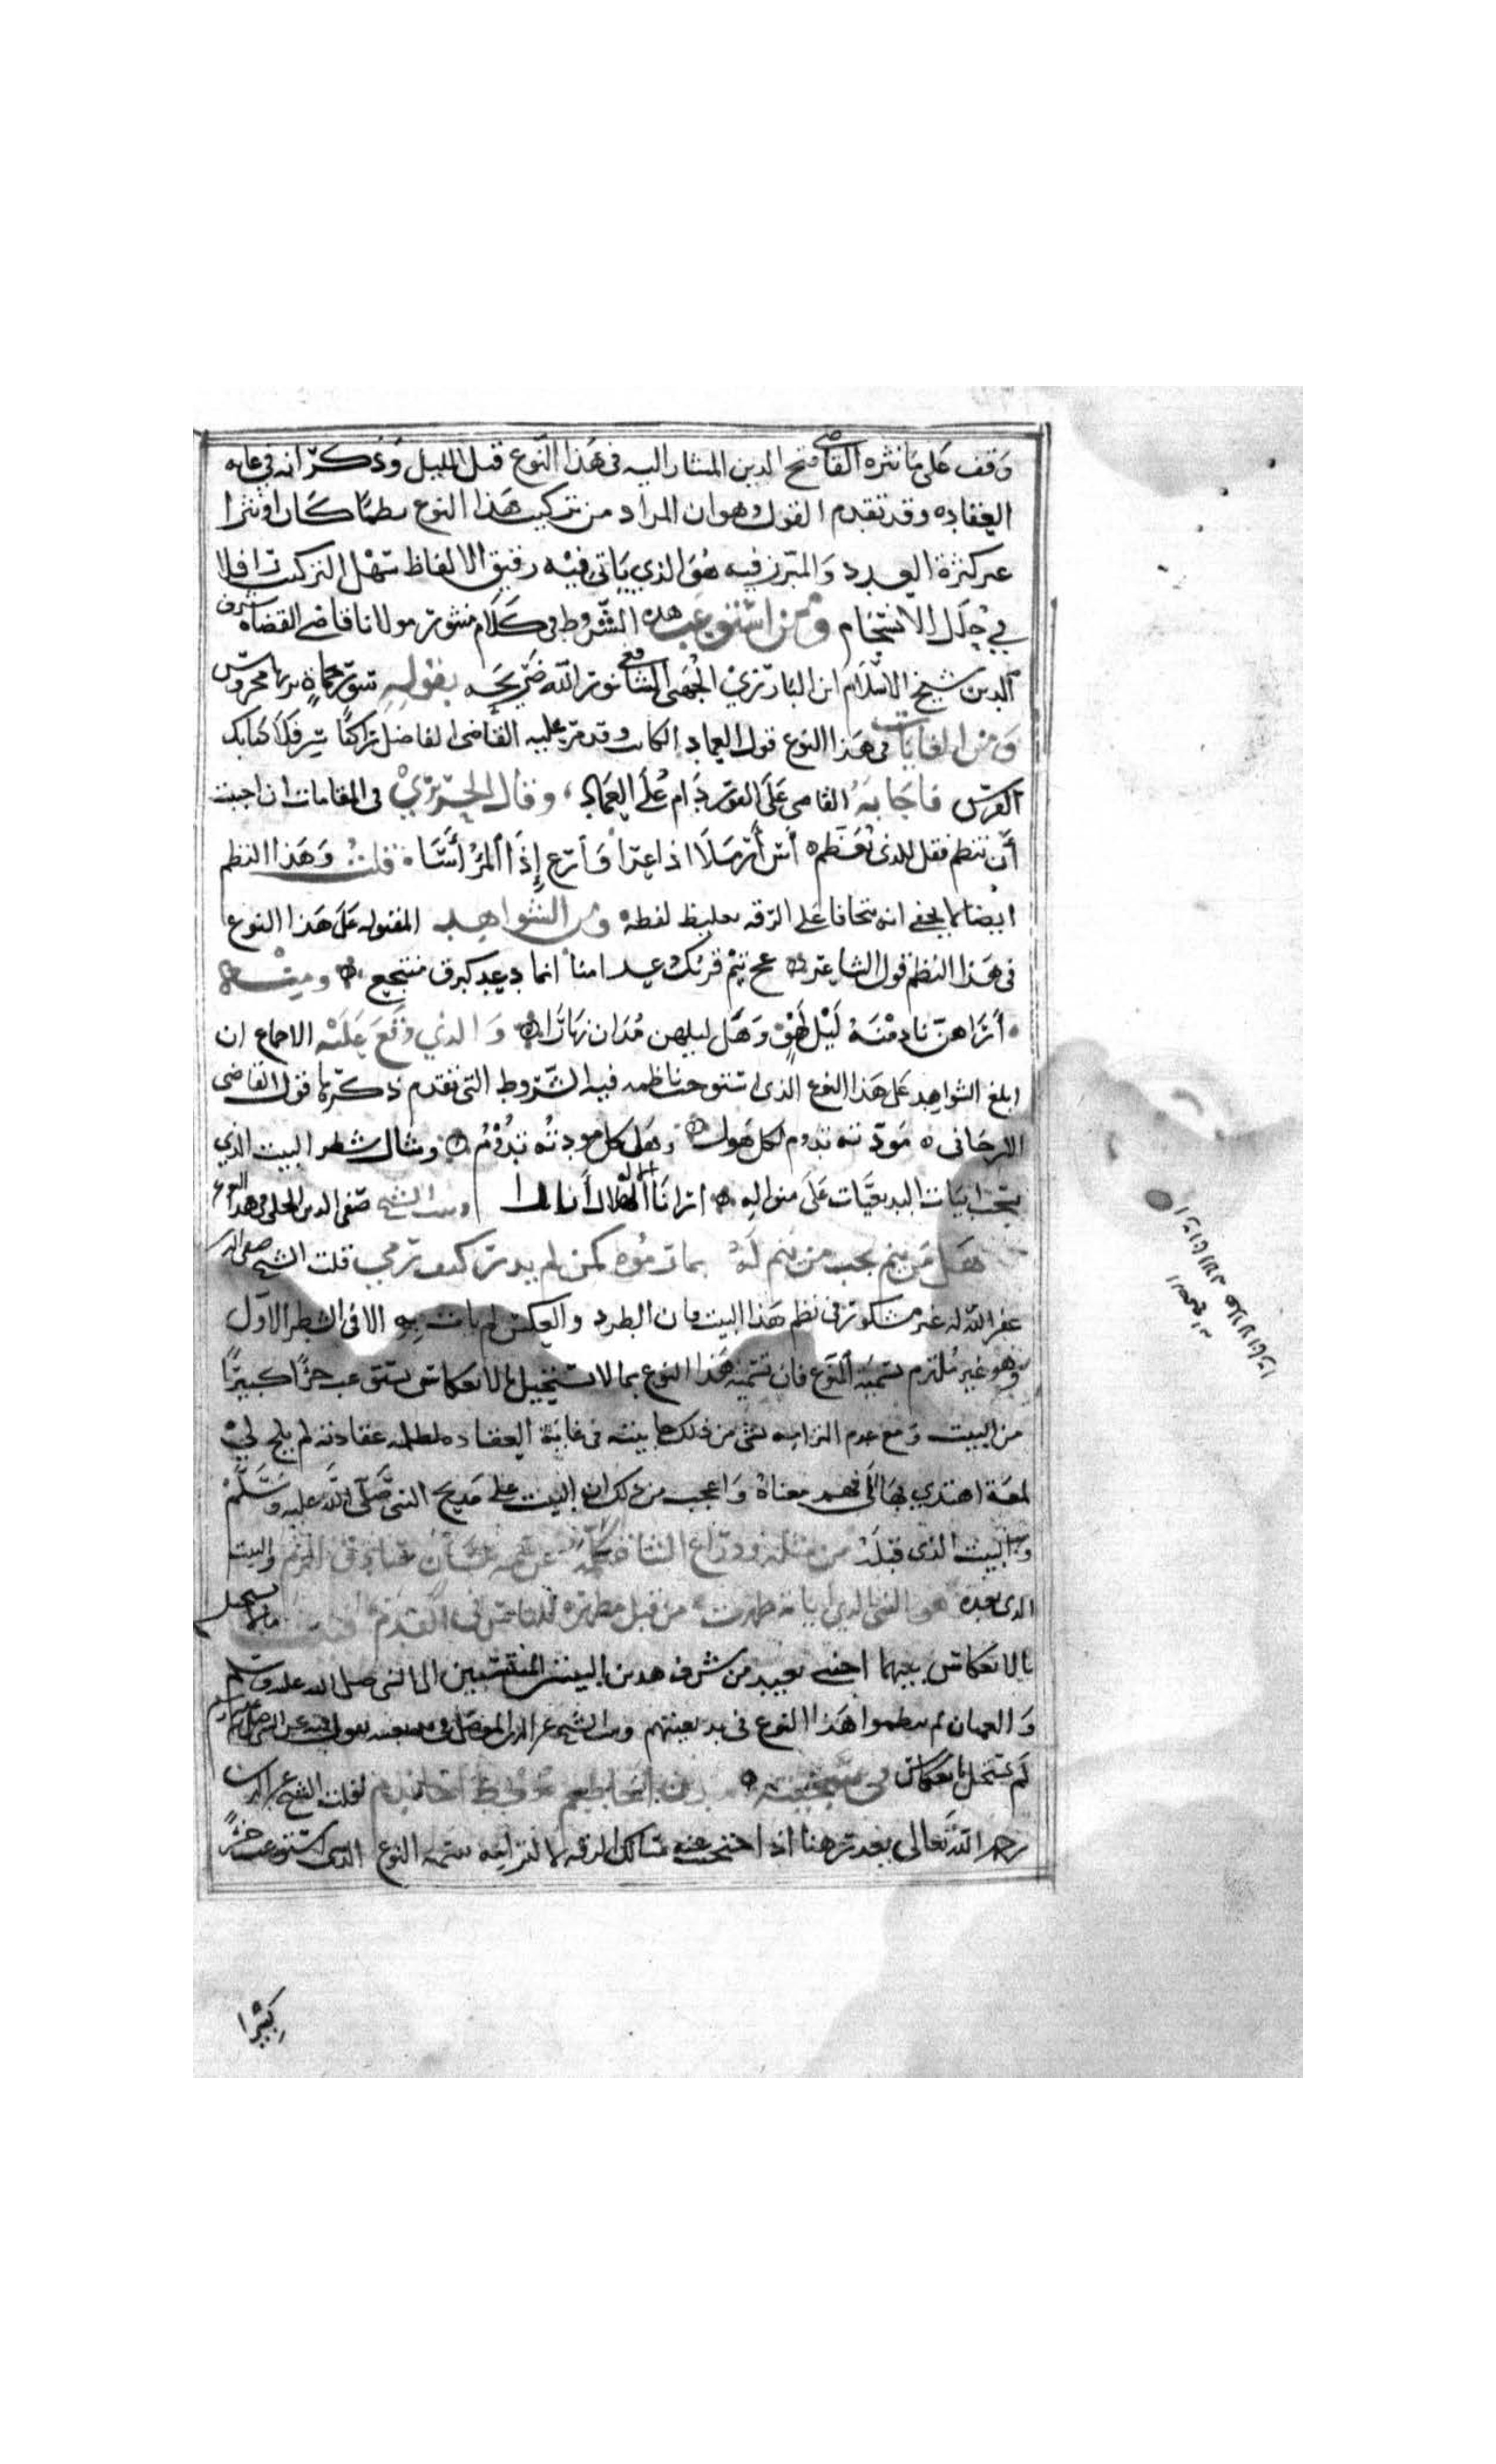 وقف على ما نثره القاضي فتح الدين المشار اليه في هذا النوع قبل المليل وذكر انه في غايه
العقاده وقد تقدم القول وهو ان المراد من تركيب هذا النوع نظما كان او نثرا
عير كثرة العدد والمبرز فيه هو الذي ياتي فيه رقيق الالفاظ سهل التركيب رافلا
في حلل الانسجام ومن استوعب هذه الشروط في كلام منثور مولانا قاضي القضاه شرف
الدين شيخ الاسلام ابن البارزي الجهني الشافعي نور الله ضريحه بقوله سور حماة بربها محروس
ومن الغايات في هذا النوع قول العماد الكاتب وقد مر عليه القاضي الفاضل راكبا سر فلا كبا بك
الفرس فاجابه القاضي على الفور دام علا العماد وقال الحريري في المقامات ان احببت
ان تنظم فقل للذي تعظمه أس أرملا اذا عرا وارع إذا المرء أسا قلت وهذا النظم
ايضا لا يخفى انه متجافا على الرقه بغليظ لفظه ومن الشواهد المقبوله على هذا النوع
في هذا النظم قول الشاعر عج تنم قربك دعد امنا انما دعد كبرق منتجع ومثله
أراهن نادمنه ليل لهو وهل ليلهن مدان نهارا والذي وقع عليه الاجماع ان
ابلغ الشواهد على هذا النوع الذي استوعب ناظمه فيه الشروط التي تقدم ذكرها قول القاضي
الارجاني مودته تدوم لكل هول وهل كل مودته تدوم ومثال شطر البيت الذي
ابيات البديعيات على منواله ارانا الاله هلالا انارا وبيت الشيخ صفي الدين الحلي في هذا النوع
هل من ينم بحب من ينم له بما رموه كمن لم يدر كيف رمي قلت الشيخ صفي الدين
غفر الله له غير مشكور في نظم هذا البيت فان الطرد والعكس لم يات به الا في الشطر الاول
وهو غير ملتزم بتسمية النوع فان تسمية هذا النوع بما لا يستحيل بالانعكاس يستوعب حزا كبيرا
من البيت ومع عدم التزامه بشي من ذلك جا بيته في غاية العقاده لظلمه عقادته لم يلح لي
لمعة اهتدي بها الى فهم معناه واعجب من ذلك ان البيت على مديح النبي صلى الله عليه وسلم
والبيت الذي قبله من مثله وذراع الشاة كلمه عن سمه بلسان صادق الرنم والبيت
الذي بعده هو النبي الذي اياته ظهرت من قبل مظهره للناس في القدم قلت ما يستحيل
بالانعكاس بينهما اجنبي بعيد من شرف هذين البيتين المنتسبين الى النبي صلى الله عليه وسلم
والعميان لم ينظموا هذا النوع في بديعيتهم وبيت الشيخ عز الدين الموصلي في بديعيته يقول فيه عن النبي صلى الله عليه وسلم
لم يستحل بانعكاس في سجيته
رحمه الله تعالى بعذر هنا اذا اختفت عنه مسالك الرقه لالتزامه بتسمية النوع الذي استوعب حزا
كبيرا